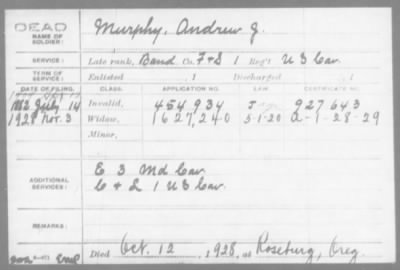 DEAD
NAME OF SOLDIER: Murphy, Andrew J.
SERVICE: Late rank, Band. Co. F+S 1 Reg't U S Cav.
TERM OF SERVICE: Enlisted , 1 Discharged , 1
DATE OF FILING. CLASS. APPLICATION NO. LAW. CERTIFICATE NO.
1882 July 14 Invalid, 454,934 927643
1928 Nov. 3 Widow, 1627,240 5-1-20 A-1-28-29
Minor,
ADDITIONAL SERVICES: E 3 Md Cav.
C + L 1 U S Cav.
REMARKS:
Died Oct. 12, 1928, at Roseburg, Oreg.